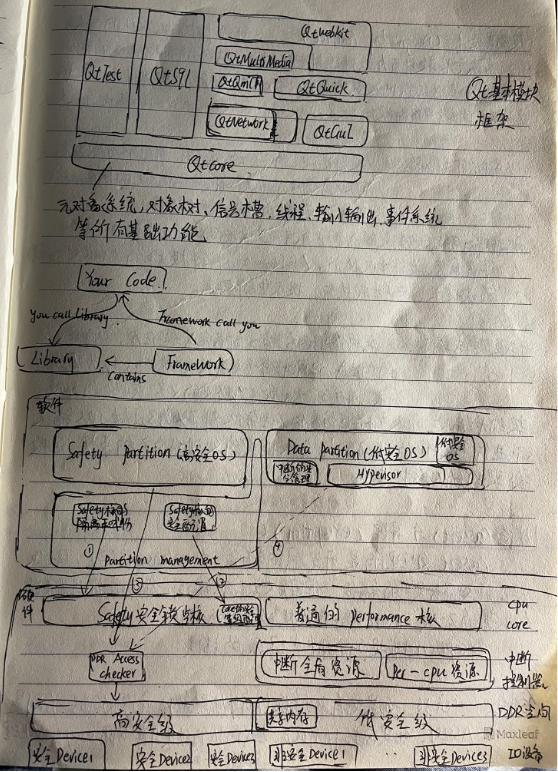 QtWebkit
QtTest
QtSql
QtMultiMedia
QtQml
QtQuick
QtNetwork
QtGui
Qtcore
Qt基本模块
框架
元对象系统,对象树,信号槽,线程,输入输出,事件系统
等所有基础功能
Your Code
You call Library.
Framework call you
Library
Framework
Contains
软件
Safety Partition (高安全OS)
Data Partition (低安全OS)
低安全
OS
Hypervisor
①
Partition management
②
③
④
硬件
Safety安全锁步核
普通的 Performance 核
cpu
core
DDR Access
checker
中断全局资源
Per-cpu 资源
中断
控制器
高安全级
共享内存
低安全级
DDR空间
Maxleaf
安全Device1
安全Device2
安全Device3
非安全Device1
...
非安全Device3
IO设备